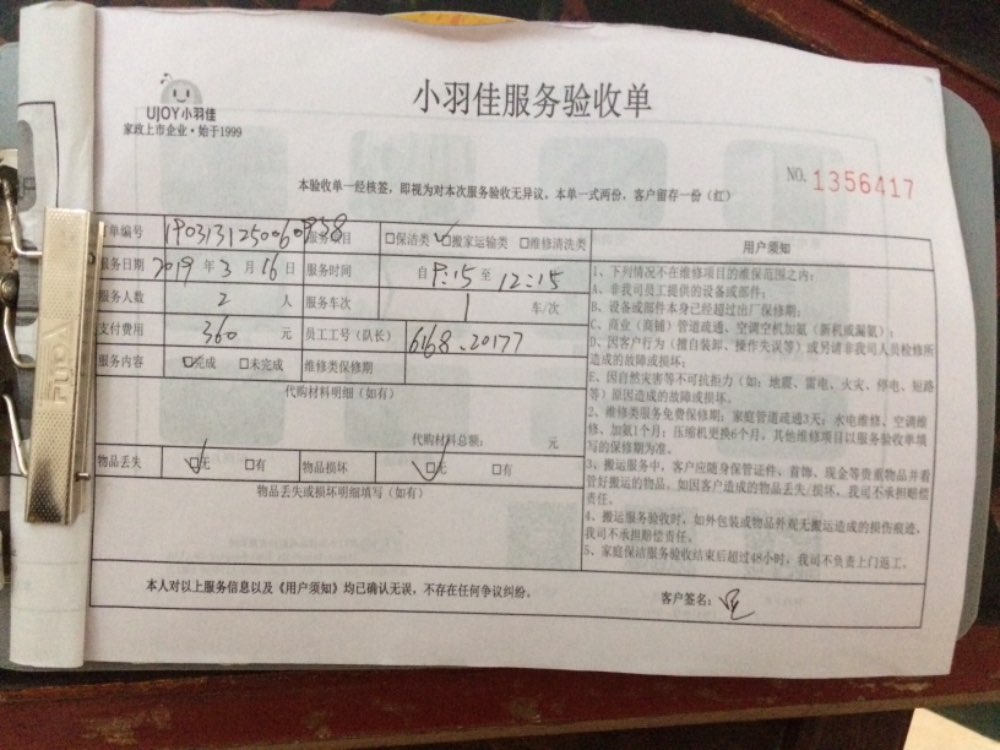 UJOY小羽佳
家政上市企业·始于1999
小羽佳服务验收单
NO. 1356417
本验收单一经核签，即视为对本次服务验收无异议。本单一式两份，客户留存一份（红）
单编号 服务 目 □保洁类 □搬家运输类 □维修清洗类
服务日期 2019 年 3 月 16 日 服务时间 自 9:15 至 12:15
服务人数 2 人 服务车次 1 车/次
支付费用 360 元 员工工号（队长） 6168.20177
服务内容 □完成 □未完成 维修类保修期
代购材料明细（如有）
代购材料总额： 元
物品丢失 □无 □有 物品损坏 □无 □有
物品丢失或损坏明细填写（如有）
用户须知
1、下列情况不在维修项目的维保范围之内：
A、非我司员工提供的设备或部件；
B、设备或部件本身已经超过出厂保修期；
C、商业（商铺）管道疏通、空调空机加氨（新机或漏氨）；
D、因客户行为（擅自装卸、操作失误等）或另请非我司人员检修所
造成的故障或损坏；
E、因自然灾害等不可抗拒力（如：地震、雷电、火灾、停电、短路
等）原因造成的故障或损坏。
2、维修类服务免费保修期：家庭管道疏通3天；水电维修、空调维
修、加氨1个月；压缩机更换6个月。其他维修项目以服务验收单填
写的保修期为准。
3、搬运服务中，客户应随身保管证件、首饰、现金等贵重物品并看
管好搬运的物品。如因客户造成的物品丢失/损坏，我司不承担赔偿
责任。
4、搬运服务验收时，如外包装或物品外观无搬运造成的损伤痕迹，
我司不承担赔偿责任。
5、家庭保洁服务验收结束后超过48小时，我司不负责上门返工。
本人对以上服务信息以及《用户须知》均已确认无误，不存在任何争议纠纷。
客户签名：